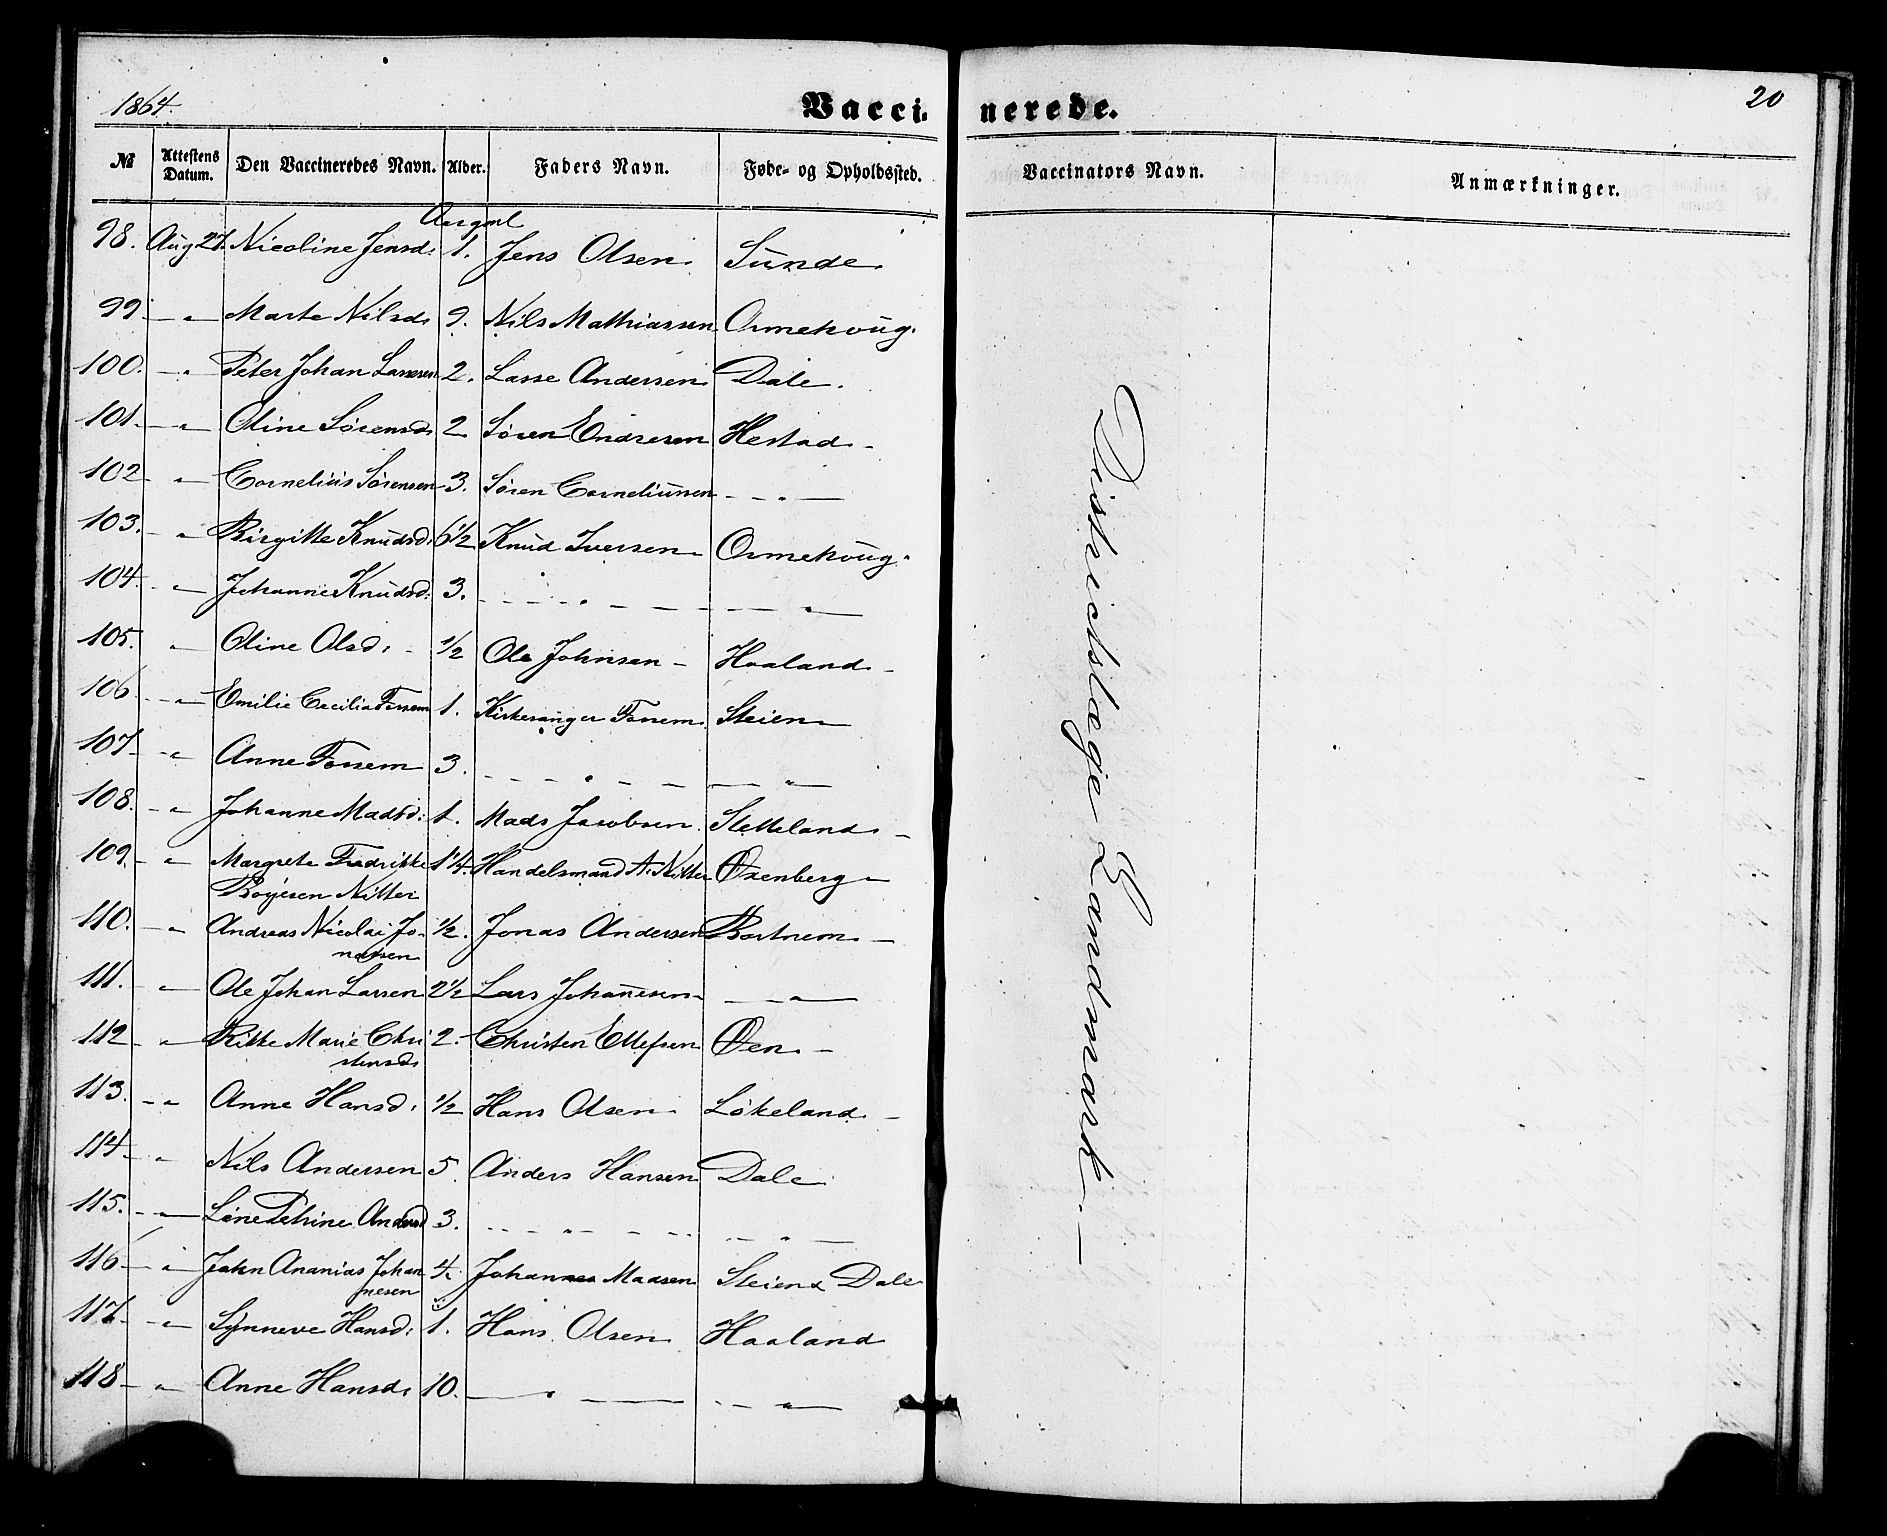 1864. Vaccinerede. 20
№ Attestens Datum. Den Vaccineredes Navn. Alder. Faders Navn. Føde- og Opholdssted. Vaccinators Navn. Anmærkninger.
Aargml
98. Aug 27. Nicoline Jensd: 1. Jens Olsen Sunde
99. — " — Marte Nilsd: 9. Nils Mathiassen Ormehoug.
100. — " Peter Johan Lassesen 2. Lasse Andersen Dale.
101. — " — Oline Sørensd: 2 Søren Endresen Hestad —
102 — " — Cornelius Sørensen 3. Søren Corneliussen — " —
103. — " Birgitte Knudsd: 6½ Knud Iversen Ormehoug.
104. — " — Johanne Knudsd: 3. — " — — " —
105. " — Oline Olsd: ½ Ole Johnsen — Haaland —
106 — " — Emilie Cecilia Forsem 1. Kirkesanger Forsem Steien
107 — " Anne Forsem 3. — " — — " —
108. — " Johanne Madsd: 1. Mads Jacobsen Stelleland —
109. — " Margrete Fredrikke 1¼. Handelsmand A. Nitter Øxenberg
Bøyesen Nitter
110. — " Andreas Nicolai Jo- ½. Jonas Andersen Bortnem —
nassen
111. — " — Ole Johan Larsen 2½ Lars Johannesen — " —
112 — " Ritte Marie Chri 2. Christen Ellefsen Øen —
stensd:
113. — " Anne Hansd: ½ Hans Olsen Løkeland —
114 — " Nils Andersen 5. Anders Hansen Dale
115. — " — Lene Petrine Andersd 3. — " — — " —
116 — " John Ananias Johan ¼ Johannes Madsen Steien x Dale
nesen
117. — " Synneve Hansd: 1. Hans Olsen Haaland
118 — " Anne Hansd: 10. — " — — " —
Districtslæge Landmark. —